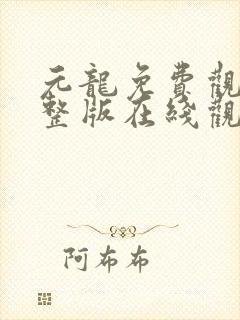 元龍免費觀
整版在綫觀
阿布布